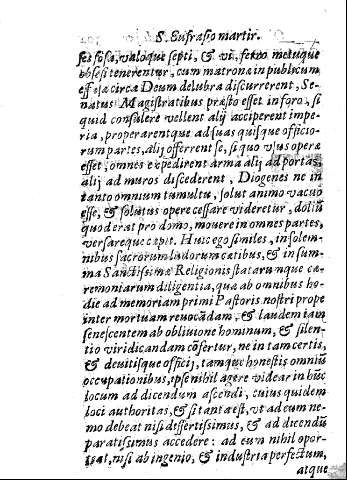 S. Eufrasio martir.
ses fosa, valoque septi, & vi, ferro metuque
obsesi tenerentur, cum matronæ in publicum
effusæ circa Deum delubra discurrerent, Se-
natus Magistratibus præsto esset in foro, si
quid consulere vellent alij acciperent impe-
ria, properarentque ad suas quisque officio-
rum partes, alij offerrent se, si quo vsus operæ
esset, omnes expedirent arma alij ad portas,
alij ad muros discederent, Diogenes ne in
tanto omnium tumultu, solut animo vacuo
esse, & solutus opere cessare videretur, doliũ
quod erat pro domo, mouere in omnes partes,
versareque cæpit. Huic ego similes, in solem-
nibus sacrorum ludorum cætibus, & in sum-
ma Sanctissimæ Religionis statarunque cæ-
remoniarum diligentia, qua ab omnibus ho-
die ad memoriam primi Pastoris nostri prope
inter mortuam reuocãdam, & laudem iam
senescentem ab obliuione hominum, & silen-
tio viridicandam cõsertur, ne in tam certis,
& deuitisque officij, tamque honestis omniũ
occupationibus, ipse nihil agere videar in hũc
locum ad dicendum ascendi, cuius quidem
loci authoritas, & si tanta est, vt ad eum ne-
mo debeat nisi dissertissimus, & ad dicendũ
paratissimus accedere: ad eum nihil opor-
teat, nisi ab ingenio, & industria perfectum,
atque